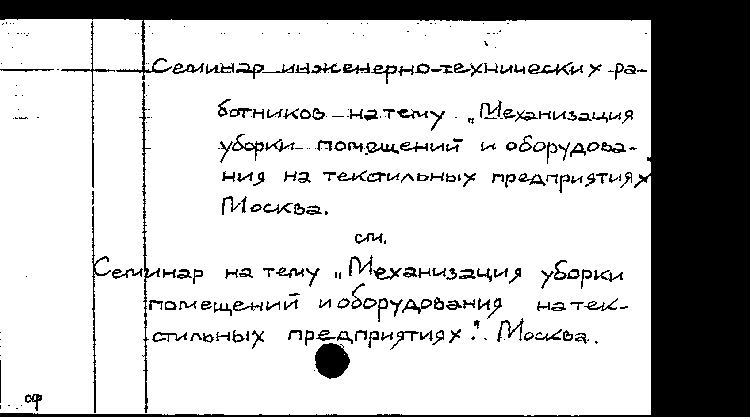 Семинар инженерно-технических ра-
ботников на тему „Механизация
уборки помещений и оборудова-
ния на текстильных предприятиях
Москва.
см.
Семинар на тему „Механизация уборки
помещений и оборудования на тек-
стильных предприятиях". Москва.
оф